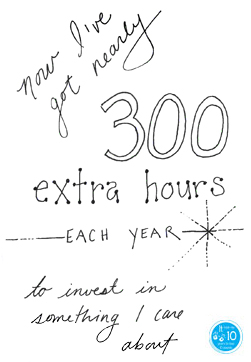 now I've
got nearly
300
extra hours
EACH YEAR
to invest in
something I care
about
10